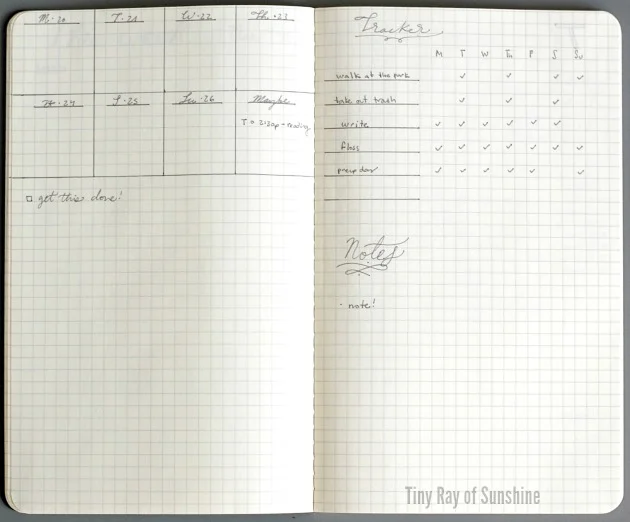 M · 20
T · 21
W · 22
Th · 23
F · 24
S · 25
Su · 26
Maybe
T @ 2:30p - reading
get this done!
Tracker
M T W Th F S Su
walk at the park
take out trash
write
floss
prep day
Notes
- note!
Tiny Ray of Sunshine